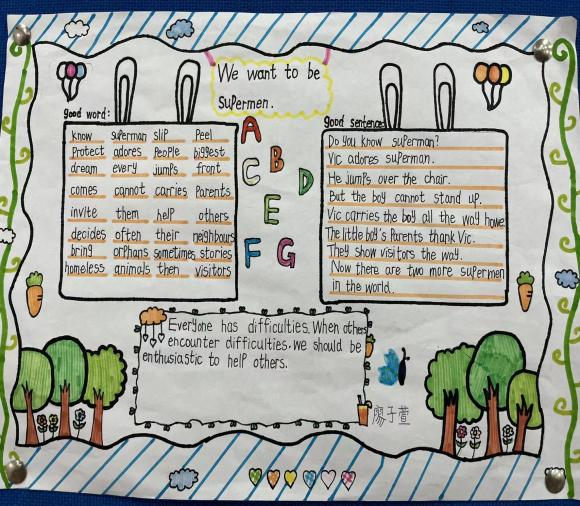 We want to be
Supermen.
good word:
know superman slip Peel
Protect adores People biggest
dream every jumps front
comes cannot carries Parents
invite them help others
decides often their neighbours
bring orphans sometimes stories
homeless animals then visitors
A
B
C
D
E
F
G
good sentences
Do you know superman?
Vic adores superman.
He jumps over the chair.
But the boy cannot stand up.
Vic carries the boy all the way howe
The little boy's Parents thank Vic.
They show visitors the way.
Now there are two more supermen
in the world.
Everyone has difficulties. When others
encounter difficulties. we should be
enthusiastic to help others.
廖子萱